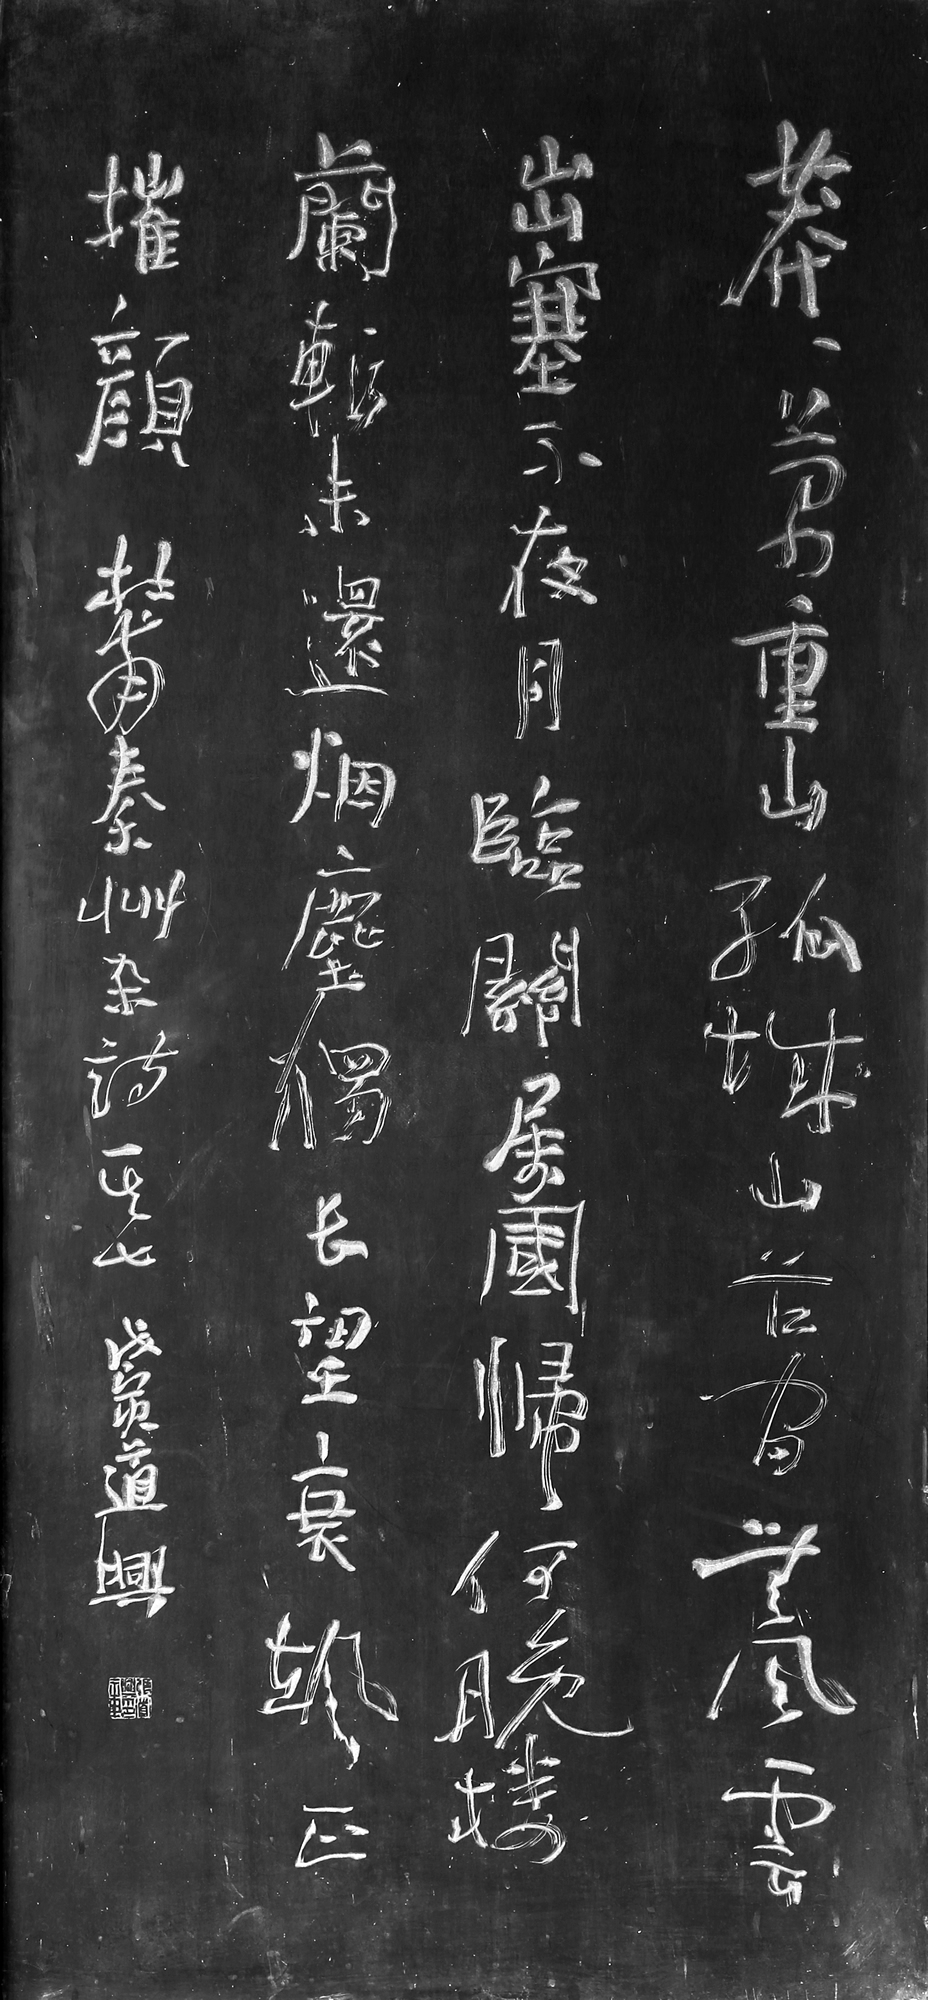 莽莽萬重山孤城山谷间無風雲
出塞不夜月臨關属國歸何晚樓
蘭斬未還烟塵獨长望衰颯正
摧顔 杜甫秦州杂詩其七 戊寅道興